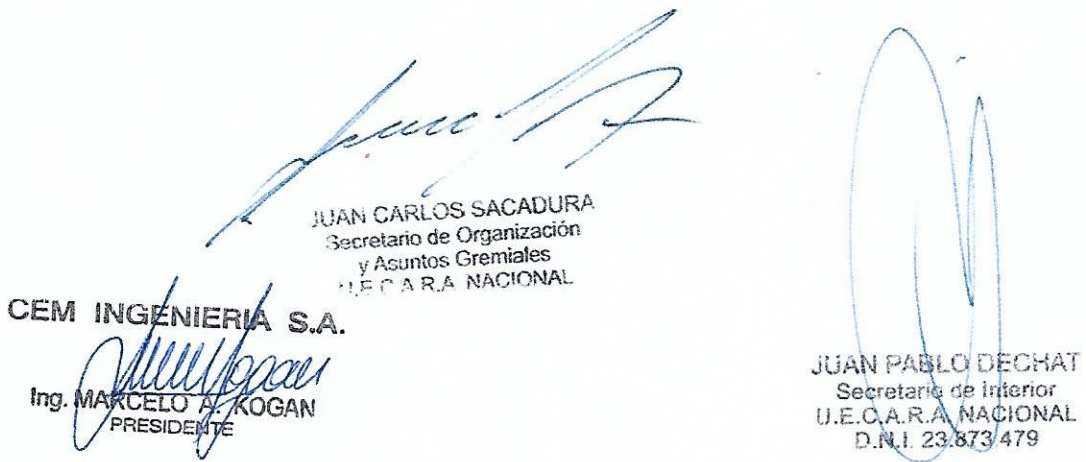 JUAN CARLOS SACADURA
Secretario de Organización
y Asuntos Gremiales
U.E.C.A.R.A. NACIONAL
CEM INGENIERIA S.A.
Ing. MARCELO A. KOGAN
PRESIDENTE
JUAN PABLO DECHAT
Secretario de Interior
U.E.C.A.R.A. NACIONAL
D.N.I. 23.873.479